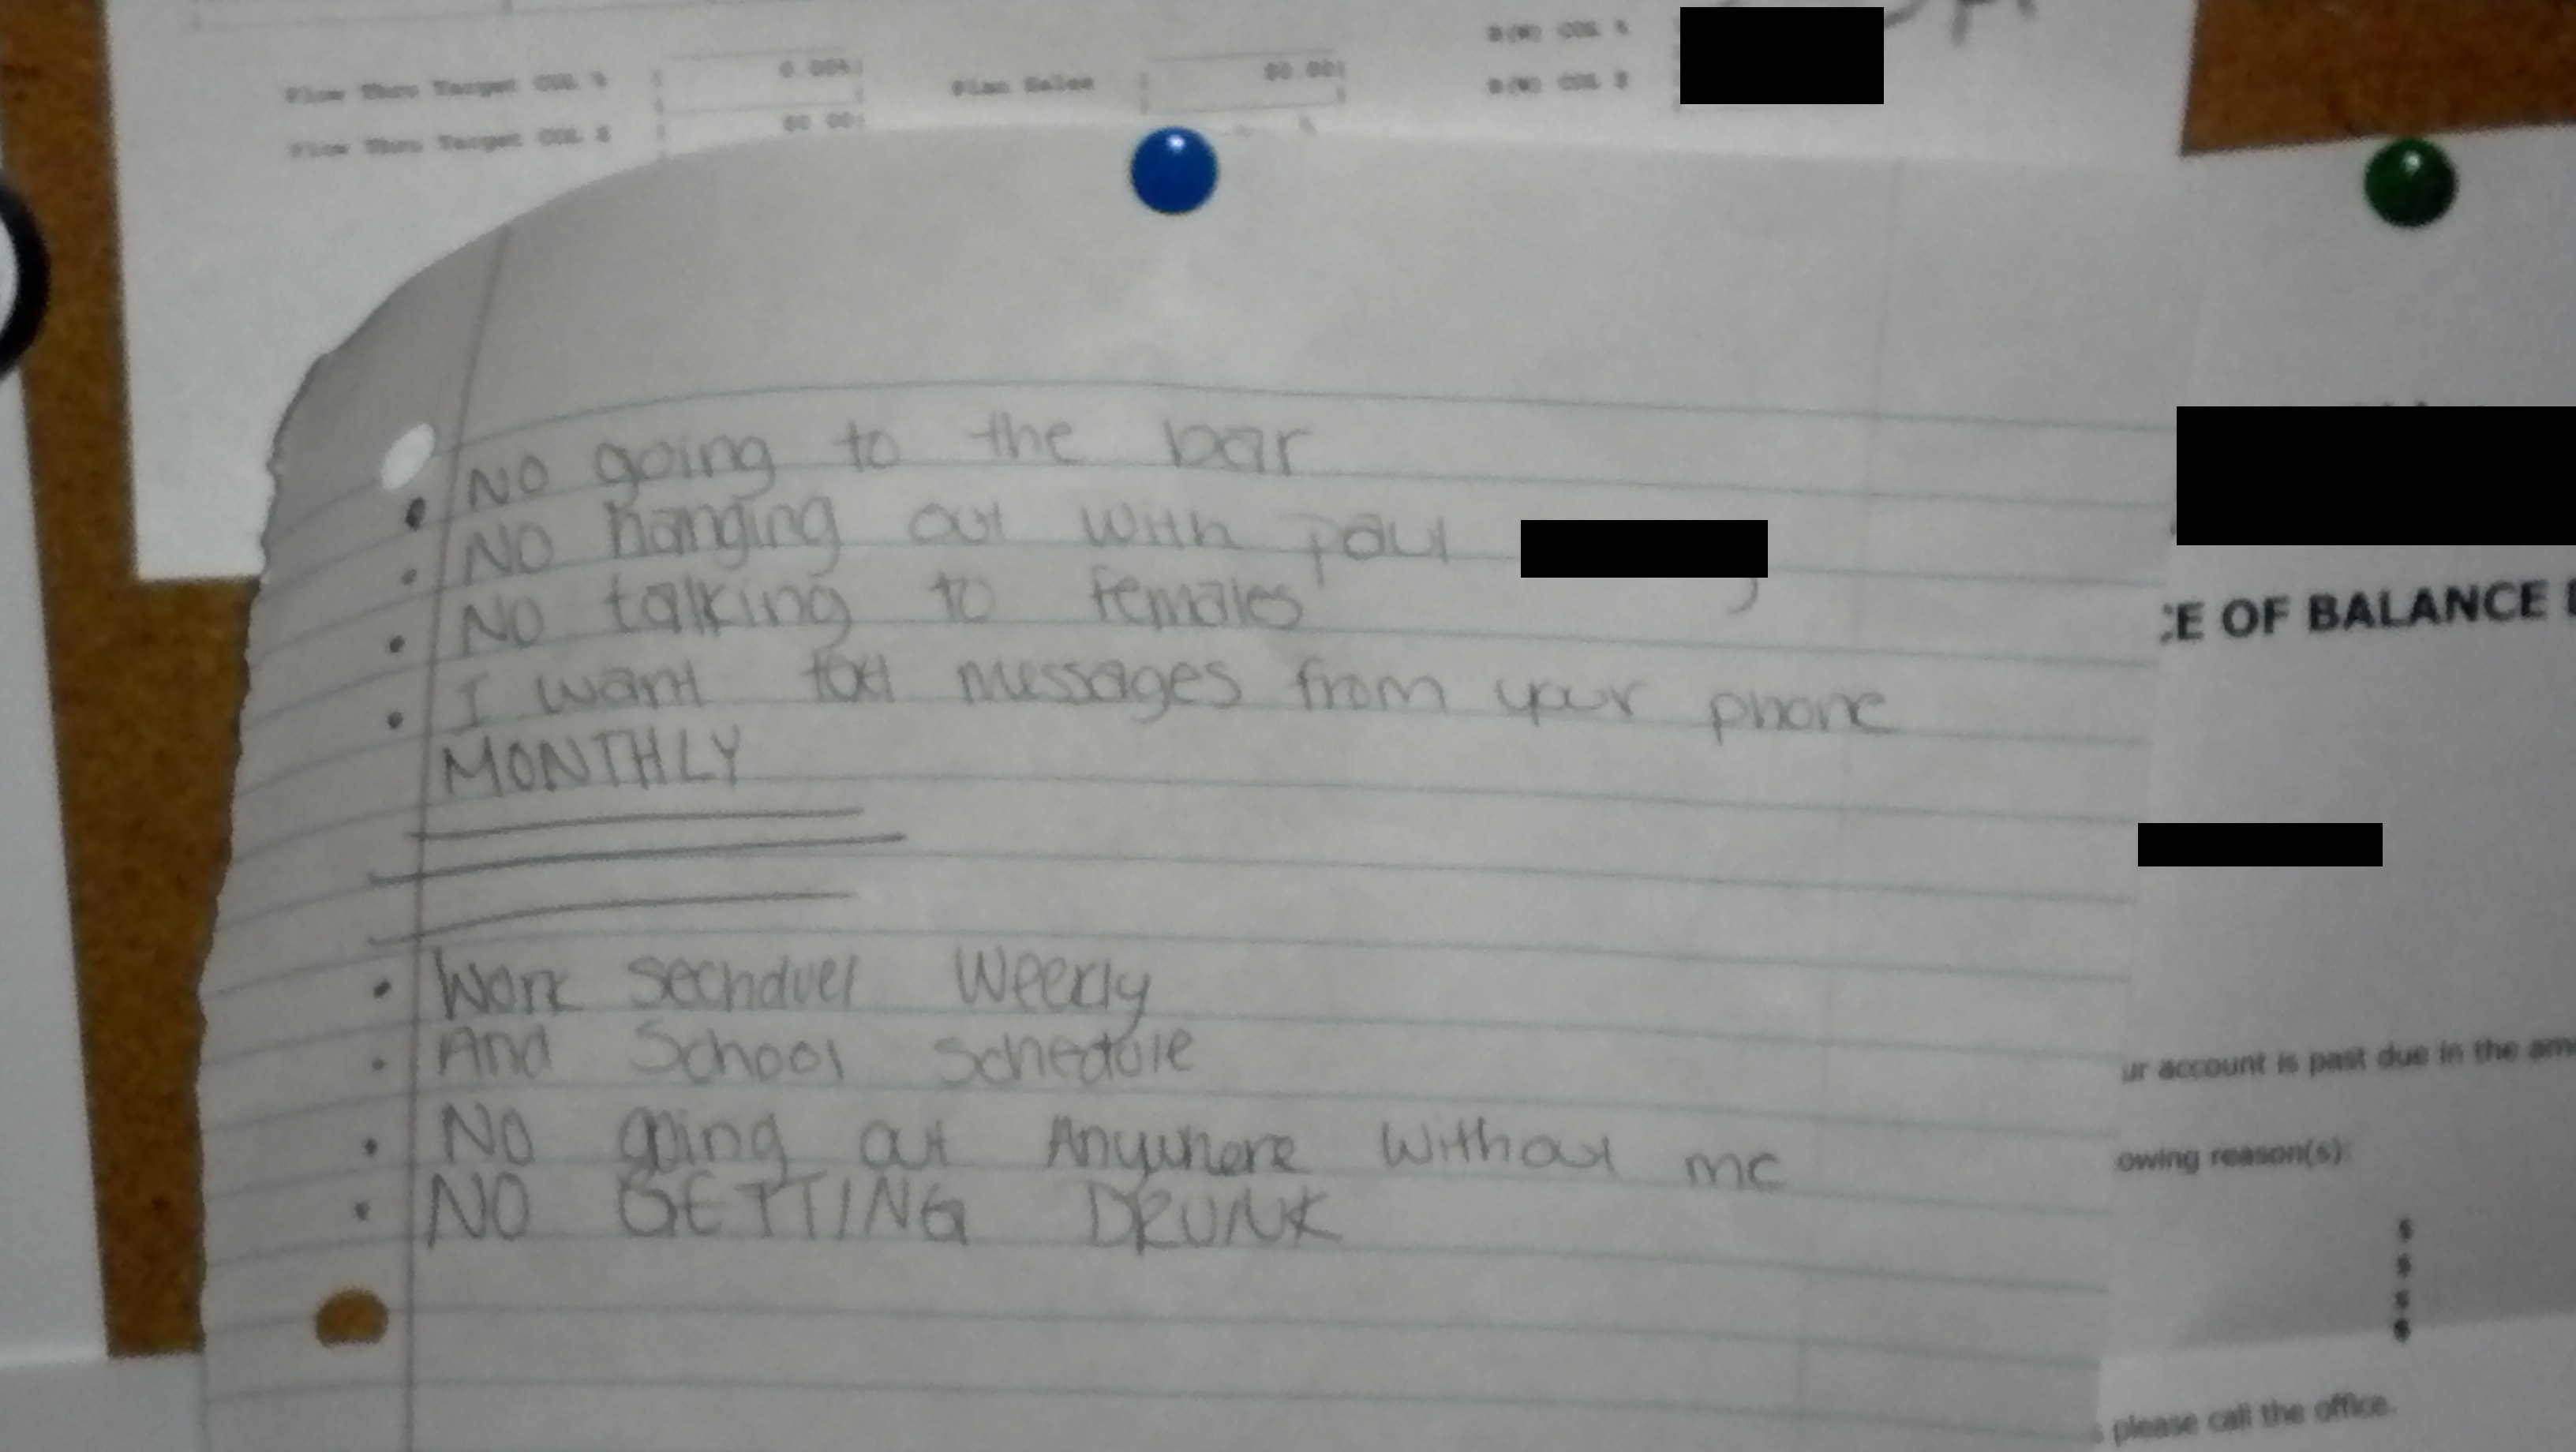 Flow Thru Target COL 4 0.00% Plan Sales $0.00
Flow Thru Target COL 2 $0.00
• NO going to the bar
• NO hanging out with paul
• NO talking to females
• I want text messages from your phone
MONTHLY
• Work sechduel Weekly
• And School schedule
• NO going out Anywhere without me
• NO GETTING DRUNK
CE OF BALANCE
ur account is past due in the am
owing reason(s):
$
$
$
$
please call the office.